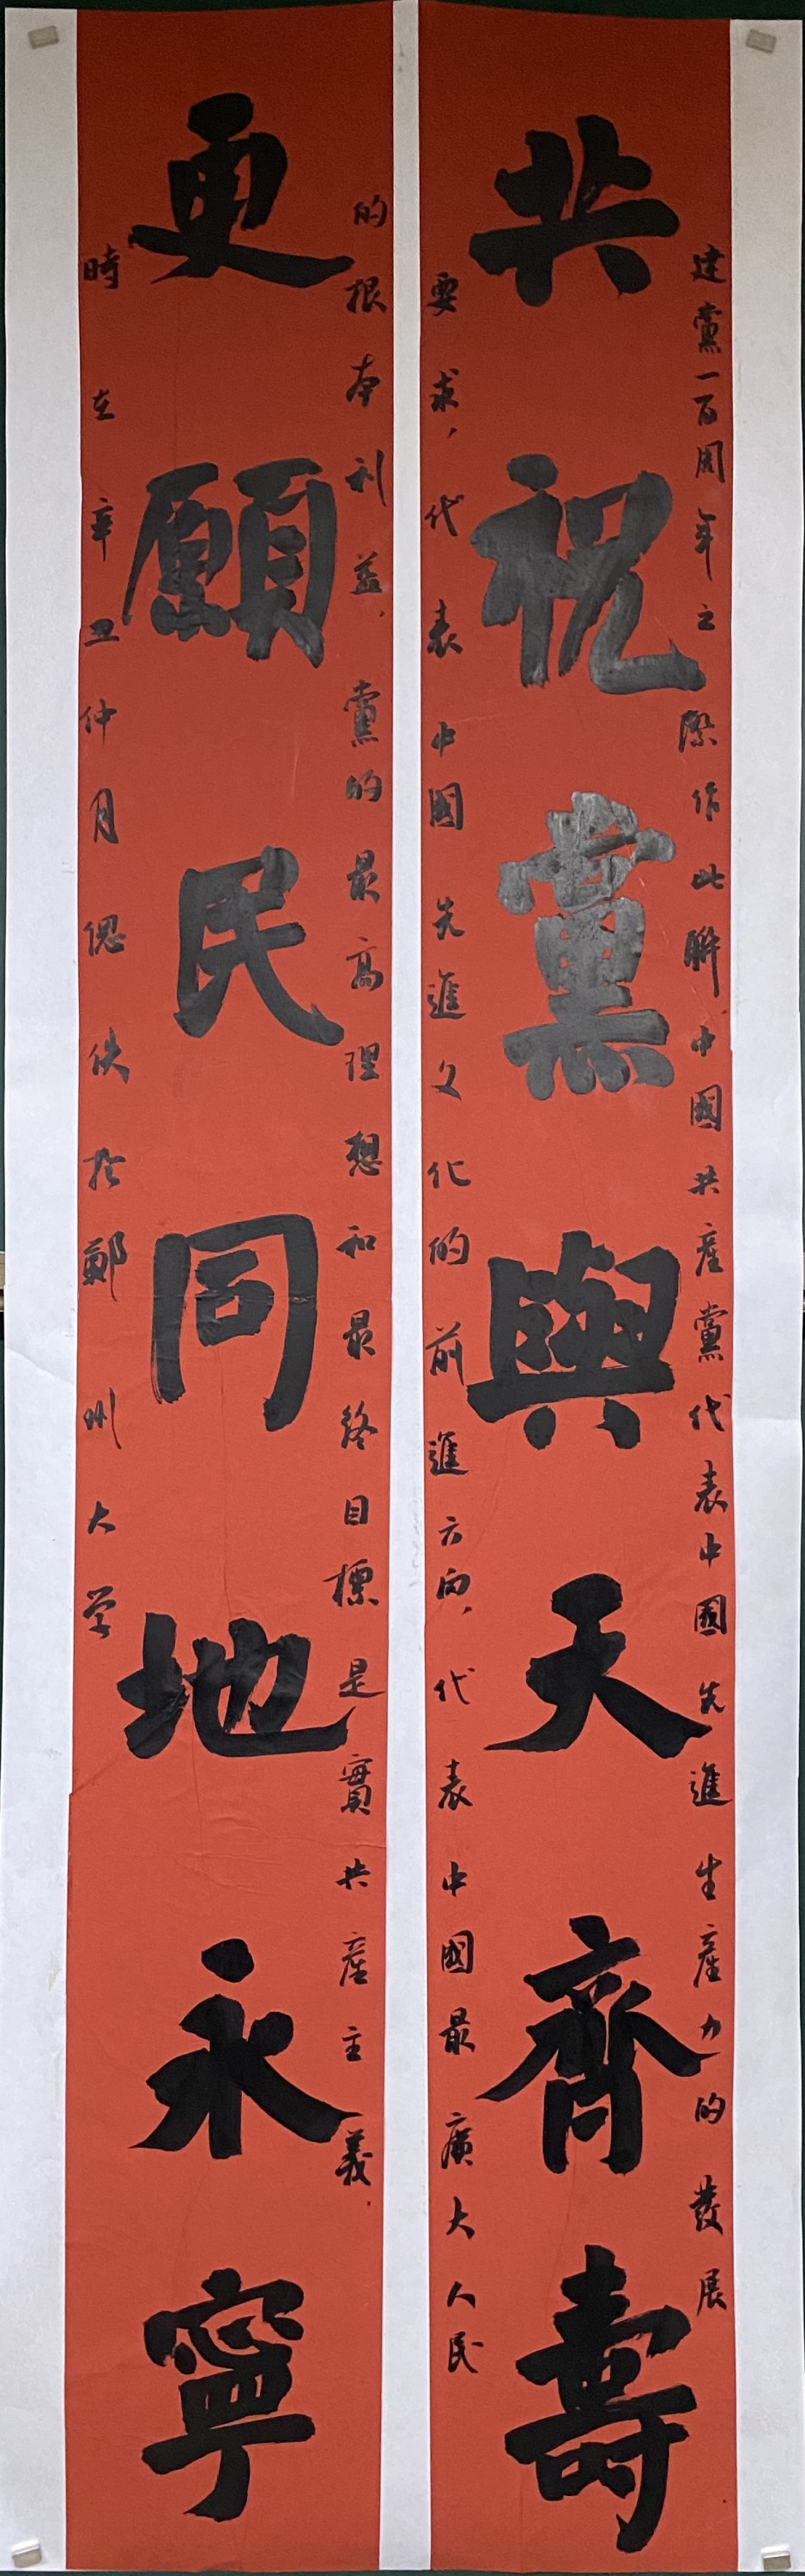 共祝黨與天齊壽
建黨一百周年之際作此聯中國共產黨代表中國先進生產力的發展
要求，代表中國先進文化的前進方向，代表中國最廣大人民
更願民同地永寧
的根本利益，黨的最高理想和最終目標是實共產主義．
時在辛丑仲月偲佚於鄭州大学